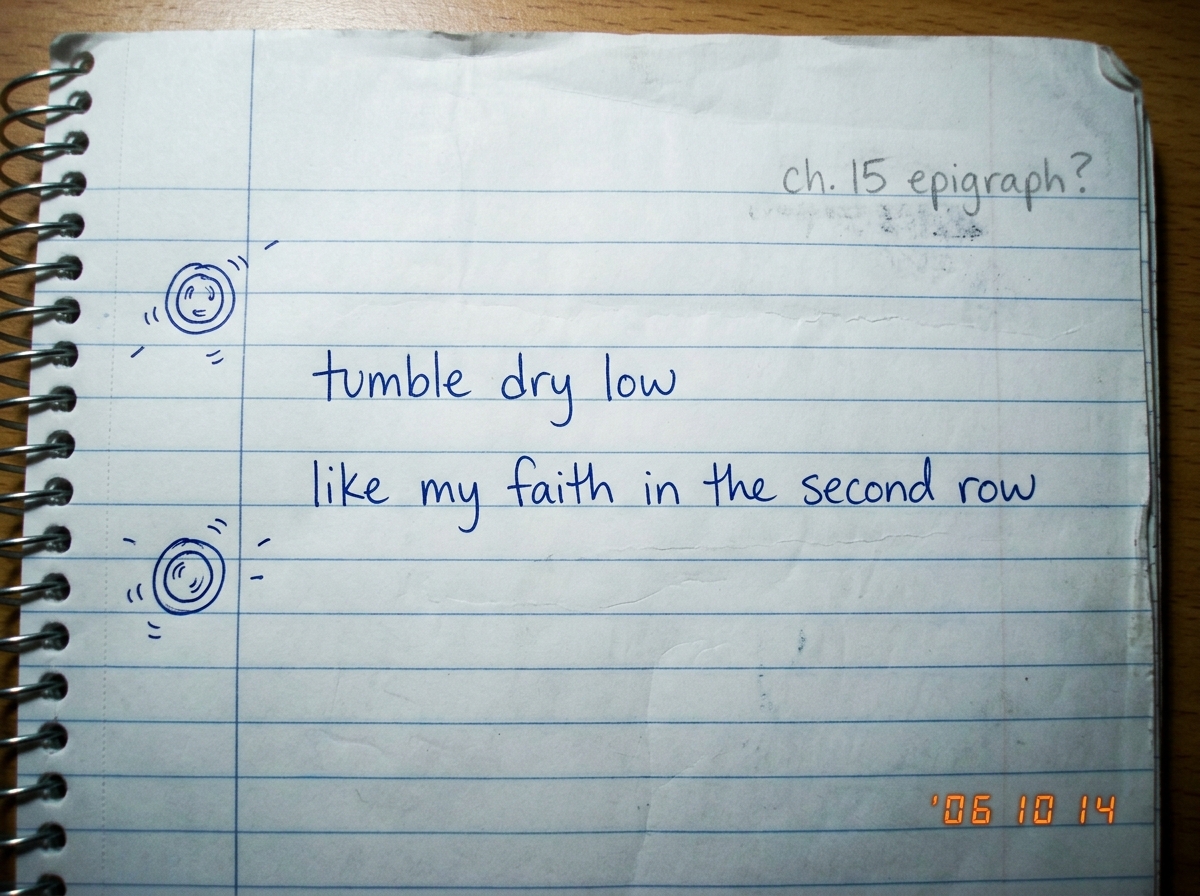 ch. 15 epigraph?
tumble dry low
like my faith in the second row
'06 10 14